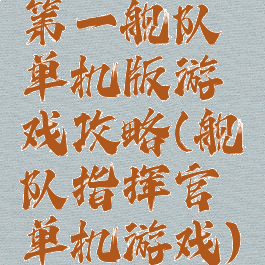 第一舰队
单机版游
戏攻略(舰
队指挥官
单机游戏)